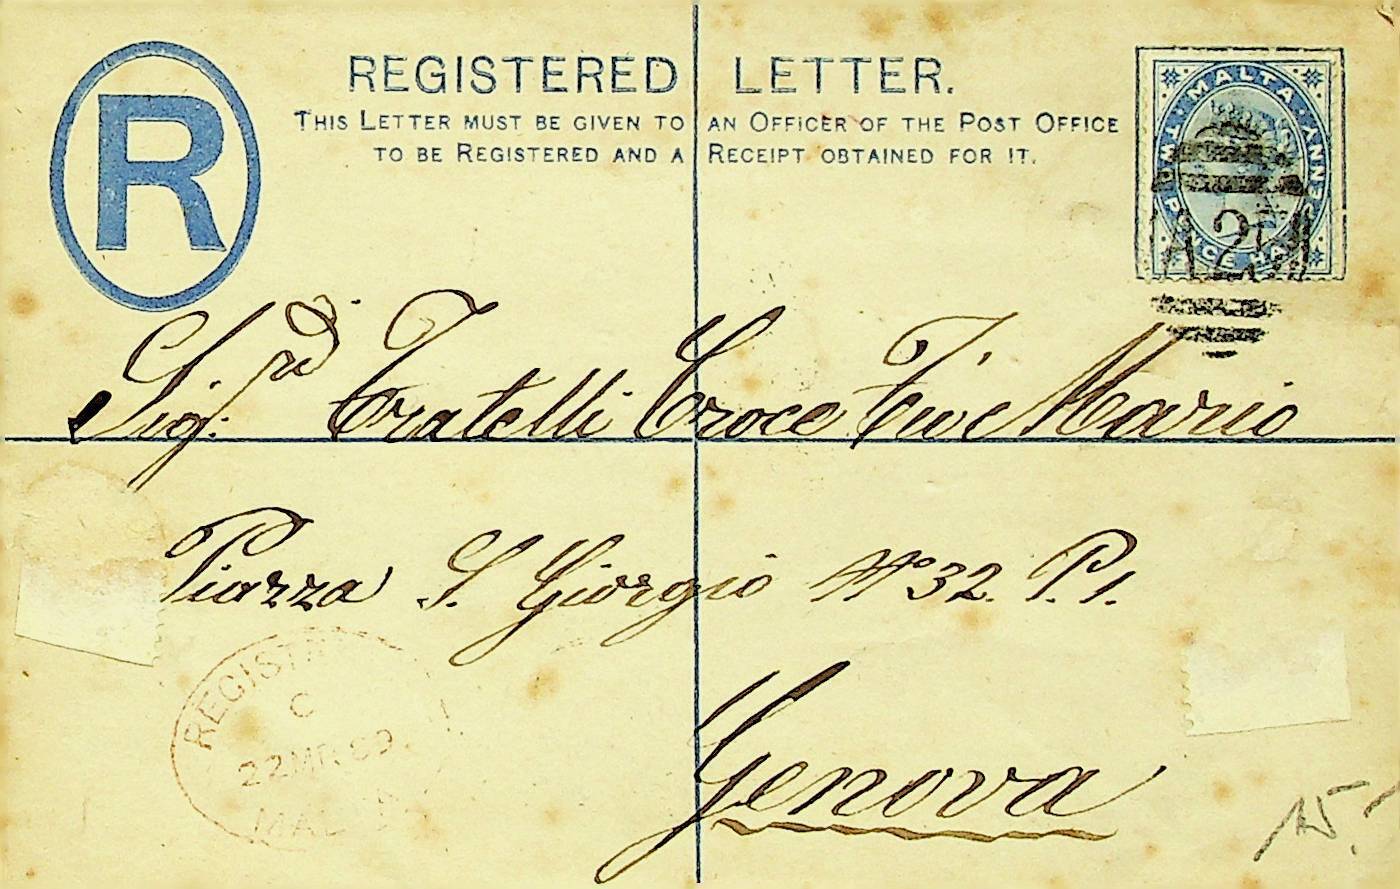 R
REGISTERED LETTER.
THIS LETTER MUST BE GIVEN TO AN OFFICER OF THE POST OFFICE
TO BE REGISTERED AND A RECEIPT OBTAINED FOR IT.
MALTA & ANNEXES
TWO PENCE HALF
A 25
Sigri Fratelli Croce Mario
Piazza S. Giorgio No 32. P. 1.
REGISTERED
C
22 MR 89
MALTA
Genova